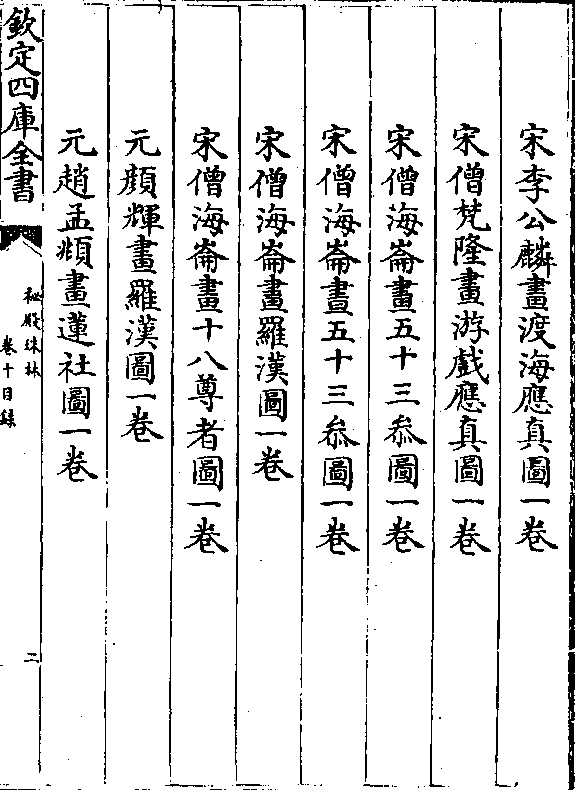 宋李公麟畫渡海應真圖一卷
宋僧梵隆畫游戲應真圖一卷
宋僧海崙畫五十三叅圖一卷
宋僧海崙畫五十三叅圖一卷
宋僧海崙畫羅漢圖一卷
宋僧海崙畫十八尊者圖一卷
元顔輝畫羅漢圖一卷
元趙孟頫畫蓮社圖一卷
欽定四庫全書
秘殿珠林
卷十目錄
二